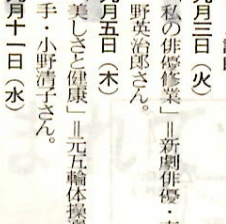 月三日（火）
私の俳優修業」＝新劇俳優・
野英治郎さん。
月五日（木）
美しさと健康」＝元五輪体操
手・小野清子さん。
月十一日（水）